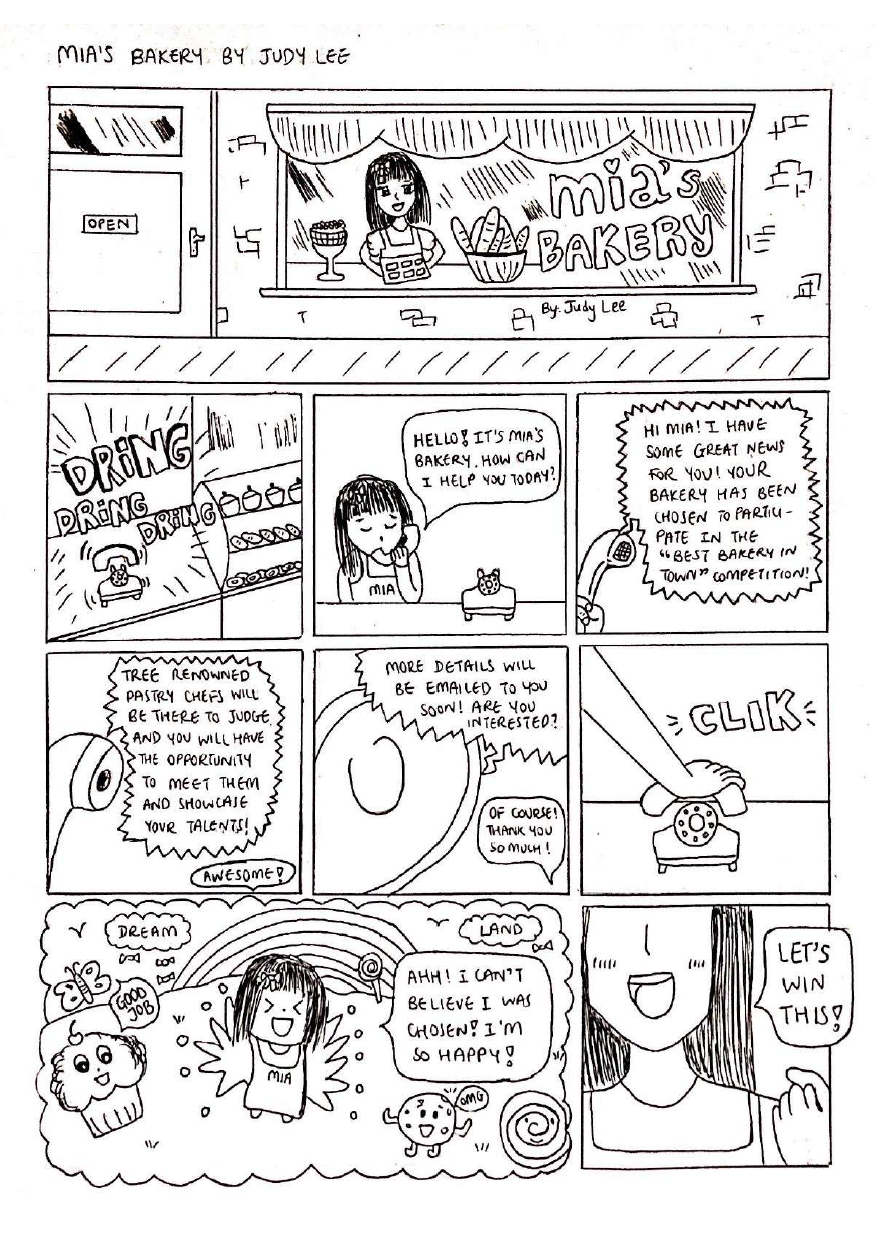 MIA'S BAKERY BY JUDY LEE
OPEN
mia's
BAKERY
By: Judy Lee
DRiNG
DRiNG
DRiNG
HELLO! IT'S MIA'S
BAKERY. HOW CAN
I HELP YOU TODAY?
MIA
HI MIA! I HAVE
SOME GREAT NEWS
FOR YOU! YOUR
BAKERY HAS BEEN
CHOSEN TO PARTICI-
PATE IN THE
"BEST BAKERY IN
TOWN" COMPETITION!
TREE RENOWNED
PASTRY CHEFS WILL
BE THERE TO JUDGE
AND YOU WILL HAVE
THE OPPORTUNITY
TO MEET THEM
AND SHOWCASE
YOUR TALENTS!
AWESOME!
MORE DETAILS WILL
BE EMAILED TO YOU
SOON! ARE YOU
INTERESTED?
OF COURSE!
THANK YOU
SO MUCH!
CLIK
DREAM
LAND
GOOD
JOB
AHH! I CAN'T
BELIEVE I WAS
CHOSEN! I'M
SO HAPPY!
MIA
OMG
LET'S
WIN
THIS!